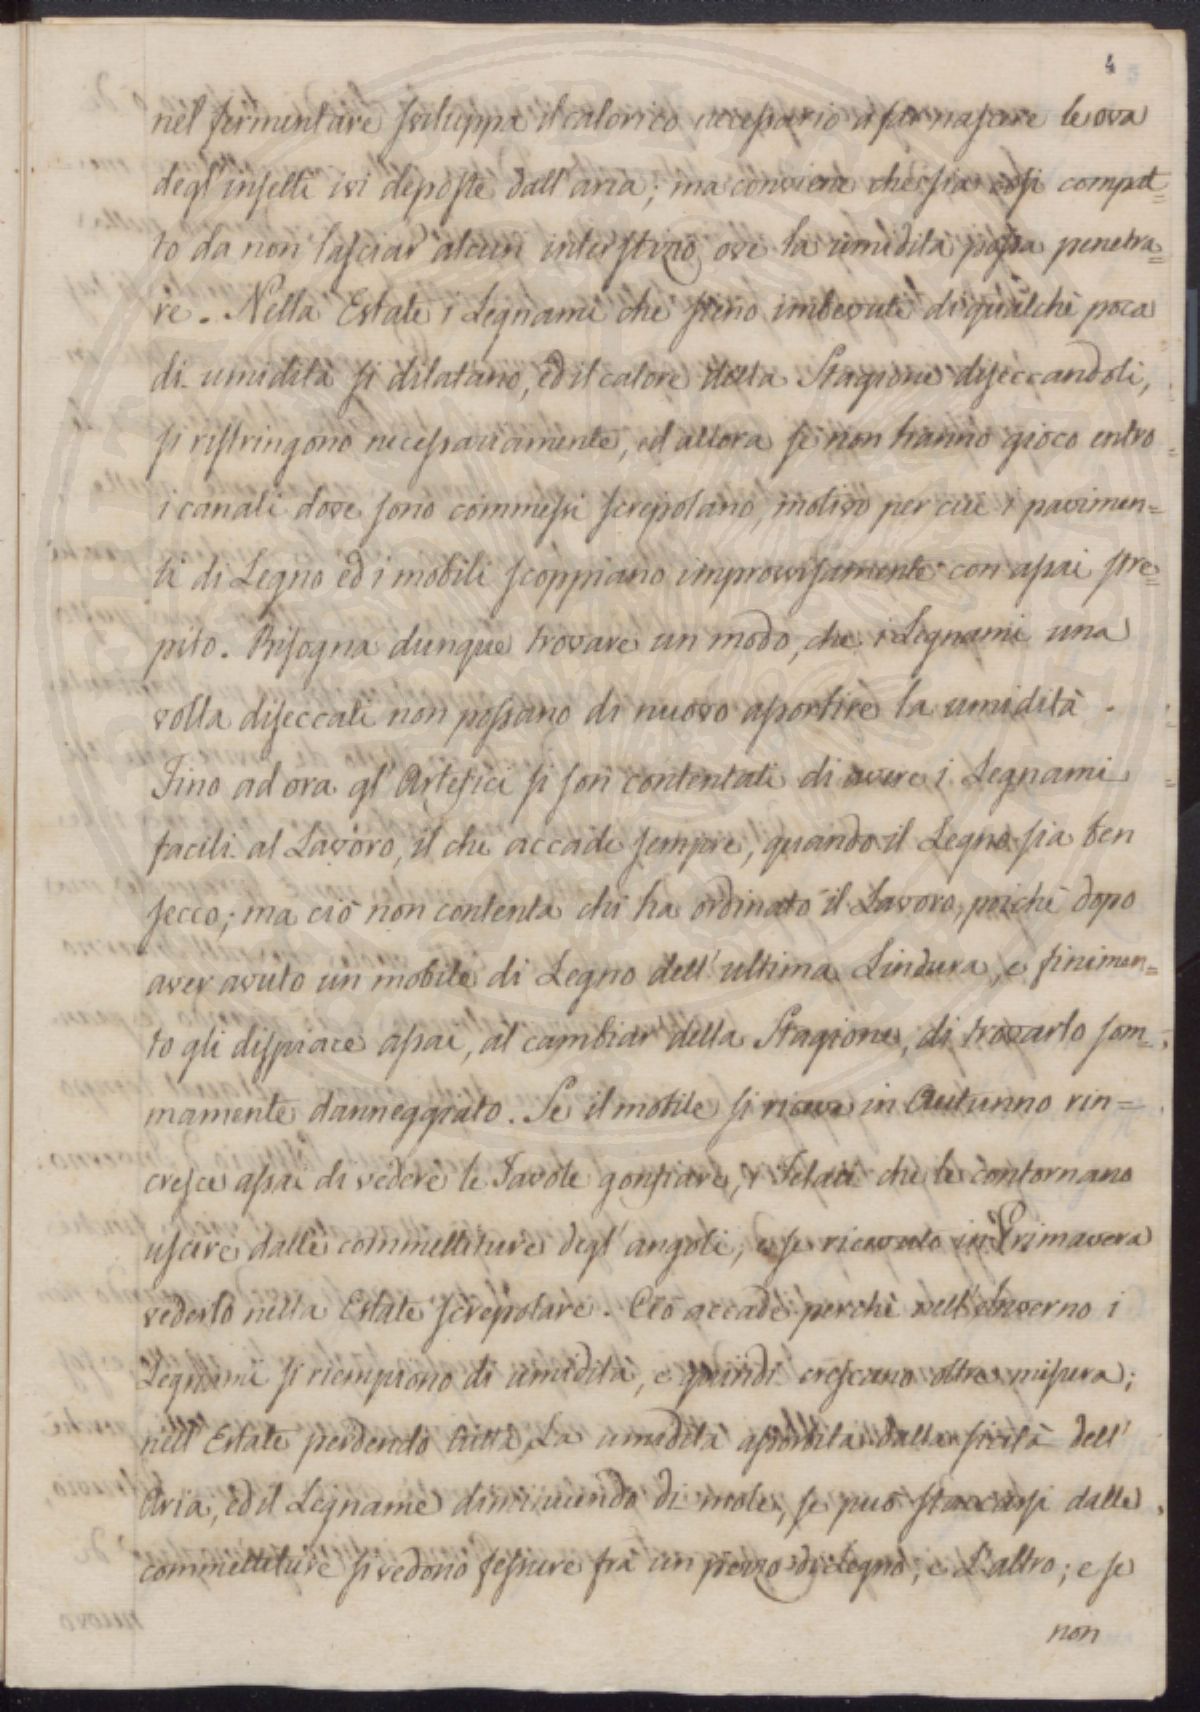 4
nel fermentare sviluppa il calorico necessario a far nascere le ova
degl'insetti ivi deposte dall'aria; ma conviene che sia così compat=
to da non lasciar alcun interstizio ove la umidità possa penetra=
re. Nella Estate i Legnami che sieno imbevuti di qualche poca
di umidità si dilatano, ed il calore della Stagione diseccandoli,
si ristringono necessariamente, ed allora se non hanno gioco entro
i canali dove sono commessi screpolano, motivo per cui i pavimen=
ti di Legno ed i mobili scoppiano improvvisamente con assai stre=
pito. Bisogna dunque trovare un modo, che i Legnami una
volta diseccati non possano di nuovo assorbire la umidità.
Fino ad ora gl'Artefici si son contentati di avere i Legnami
facili al Lavoro, il che accade sempre, quando il Legno sia ben
secco; ma ciò non contenta chi ha ordinato il Lavoro, poichè dopo
aver avuto un mobile di Legno dell'ultima Lindura, e finimen=
to gli dispiace assai, al cambiar della Stagione, di trovarlo som=
mamente danneggiato. Se il mobile si riceve in Autunno rin=
cresce assai di vedere le Tavole gonfiare, i Telati che le contornano
uscire dalle commettiture degl'angoli, e se ricevuto in Primavera
vederlo nella Estate screpolare. Ciò accade perchè nell'Inverno i
Legnami si riempiono di umidità, e quindi crescano oltre misura;
nell'Estate perdendo tutta La umidità assorbita dalla sicità dell'
Aria, ed il Legname diminuendo di mole, se può staccarsi dalle
commettiture si vedono fessure frà un pezzo di Legno, e L'altro; e se
non